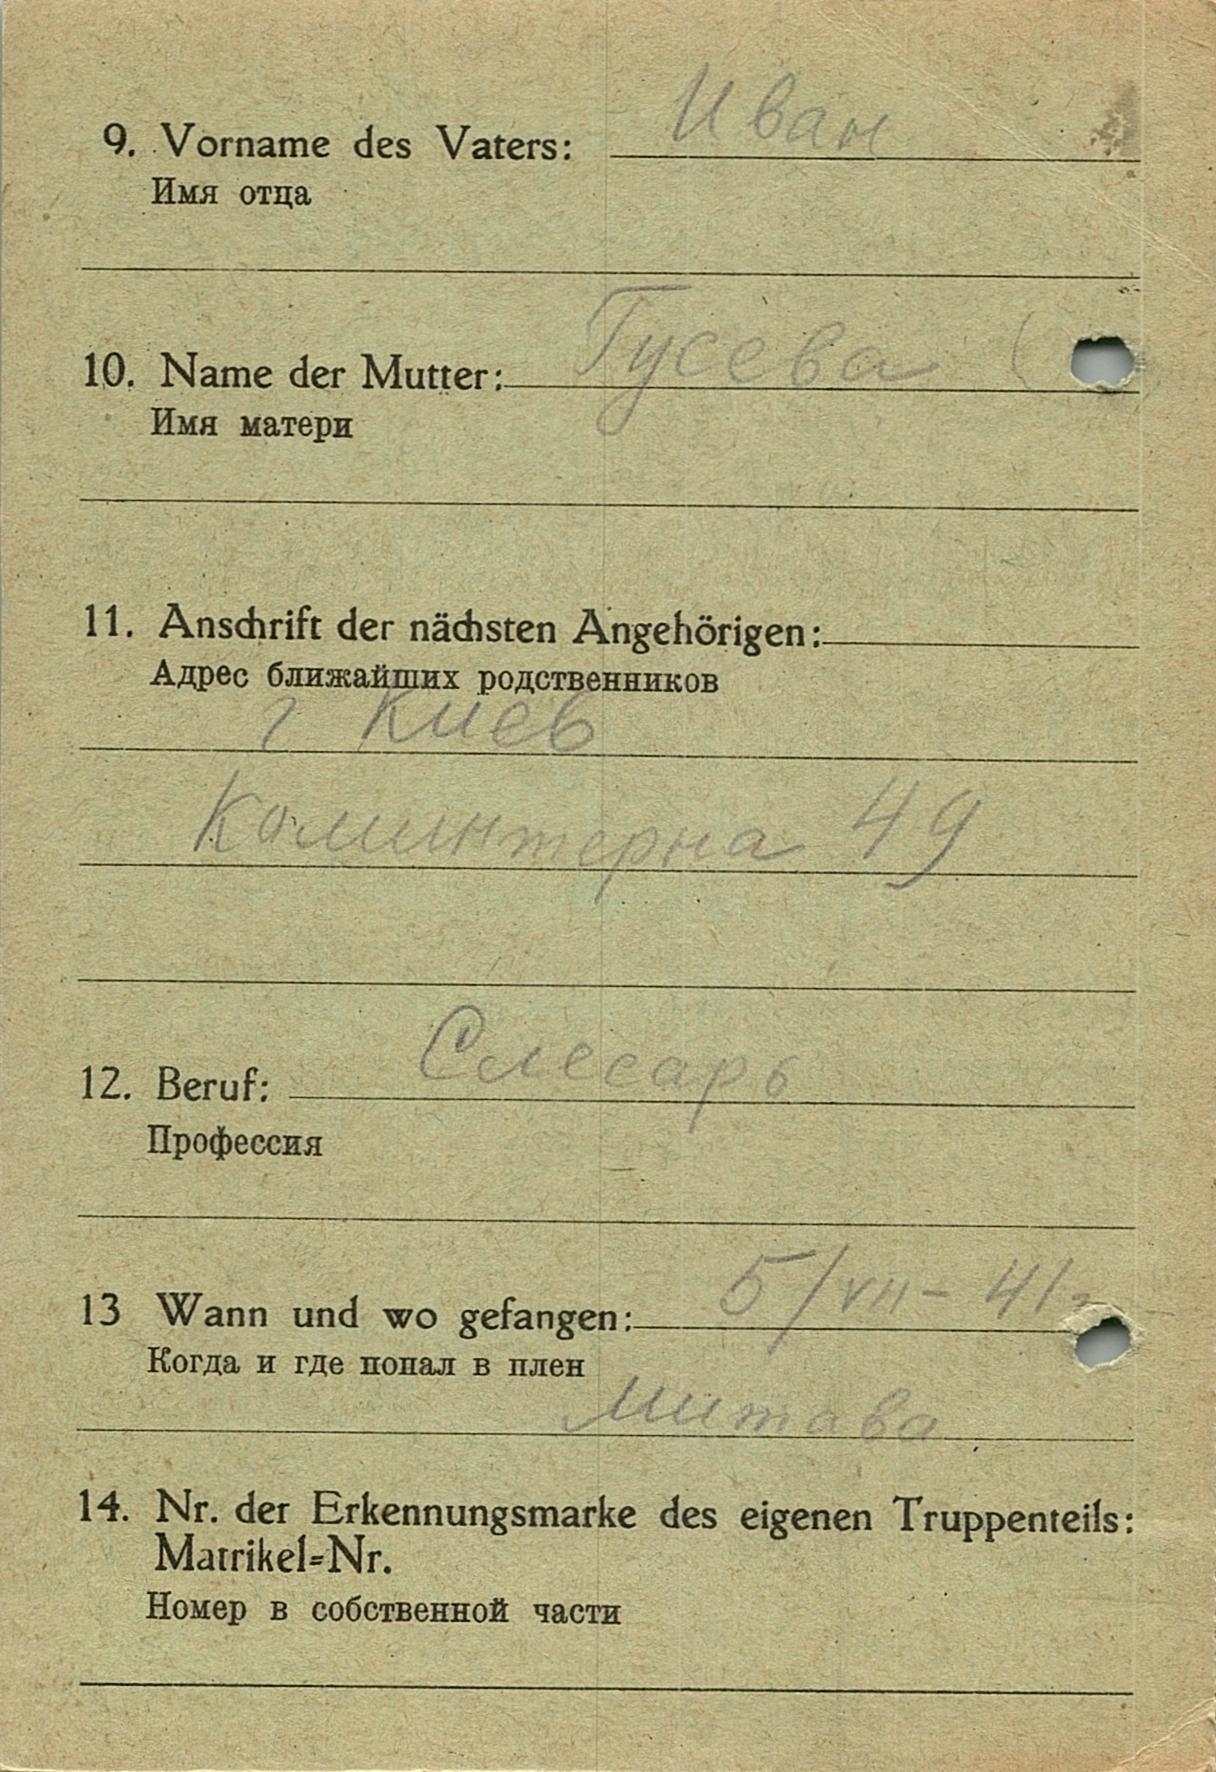 9. Vorname des Vaters: Иван
Имя отца
10. Name der Mutter: Гусева
Имя матери
11. Anschrift der nächsten Angehörigen:
Адрес ближайших родственников
г Киев
Коминтерна 49
12. Beruf: Слесарь
Профессия
13 Wann und wo gefangen: 5/VII-41г
Когда и где попал в плен
Митава
14. Nr. der Erkennungsmarke des eigenen Truppenteils:
Matrikel-Nr.
Номер в собственной части